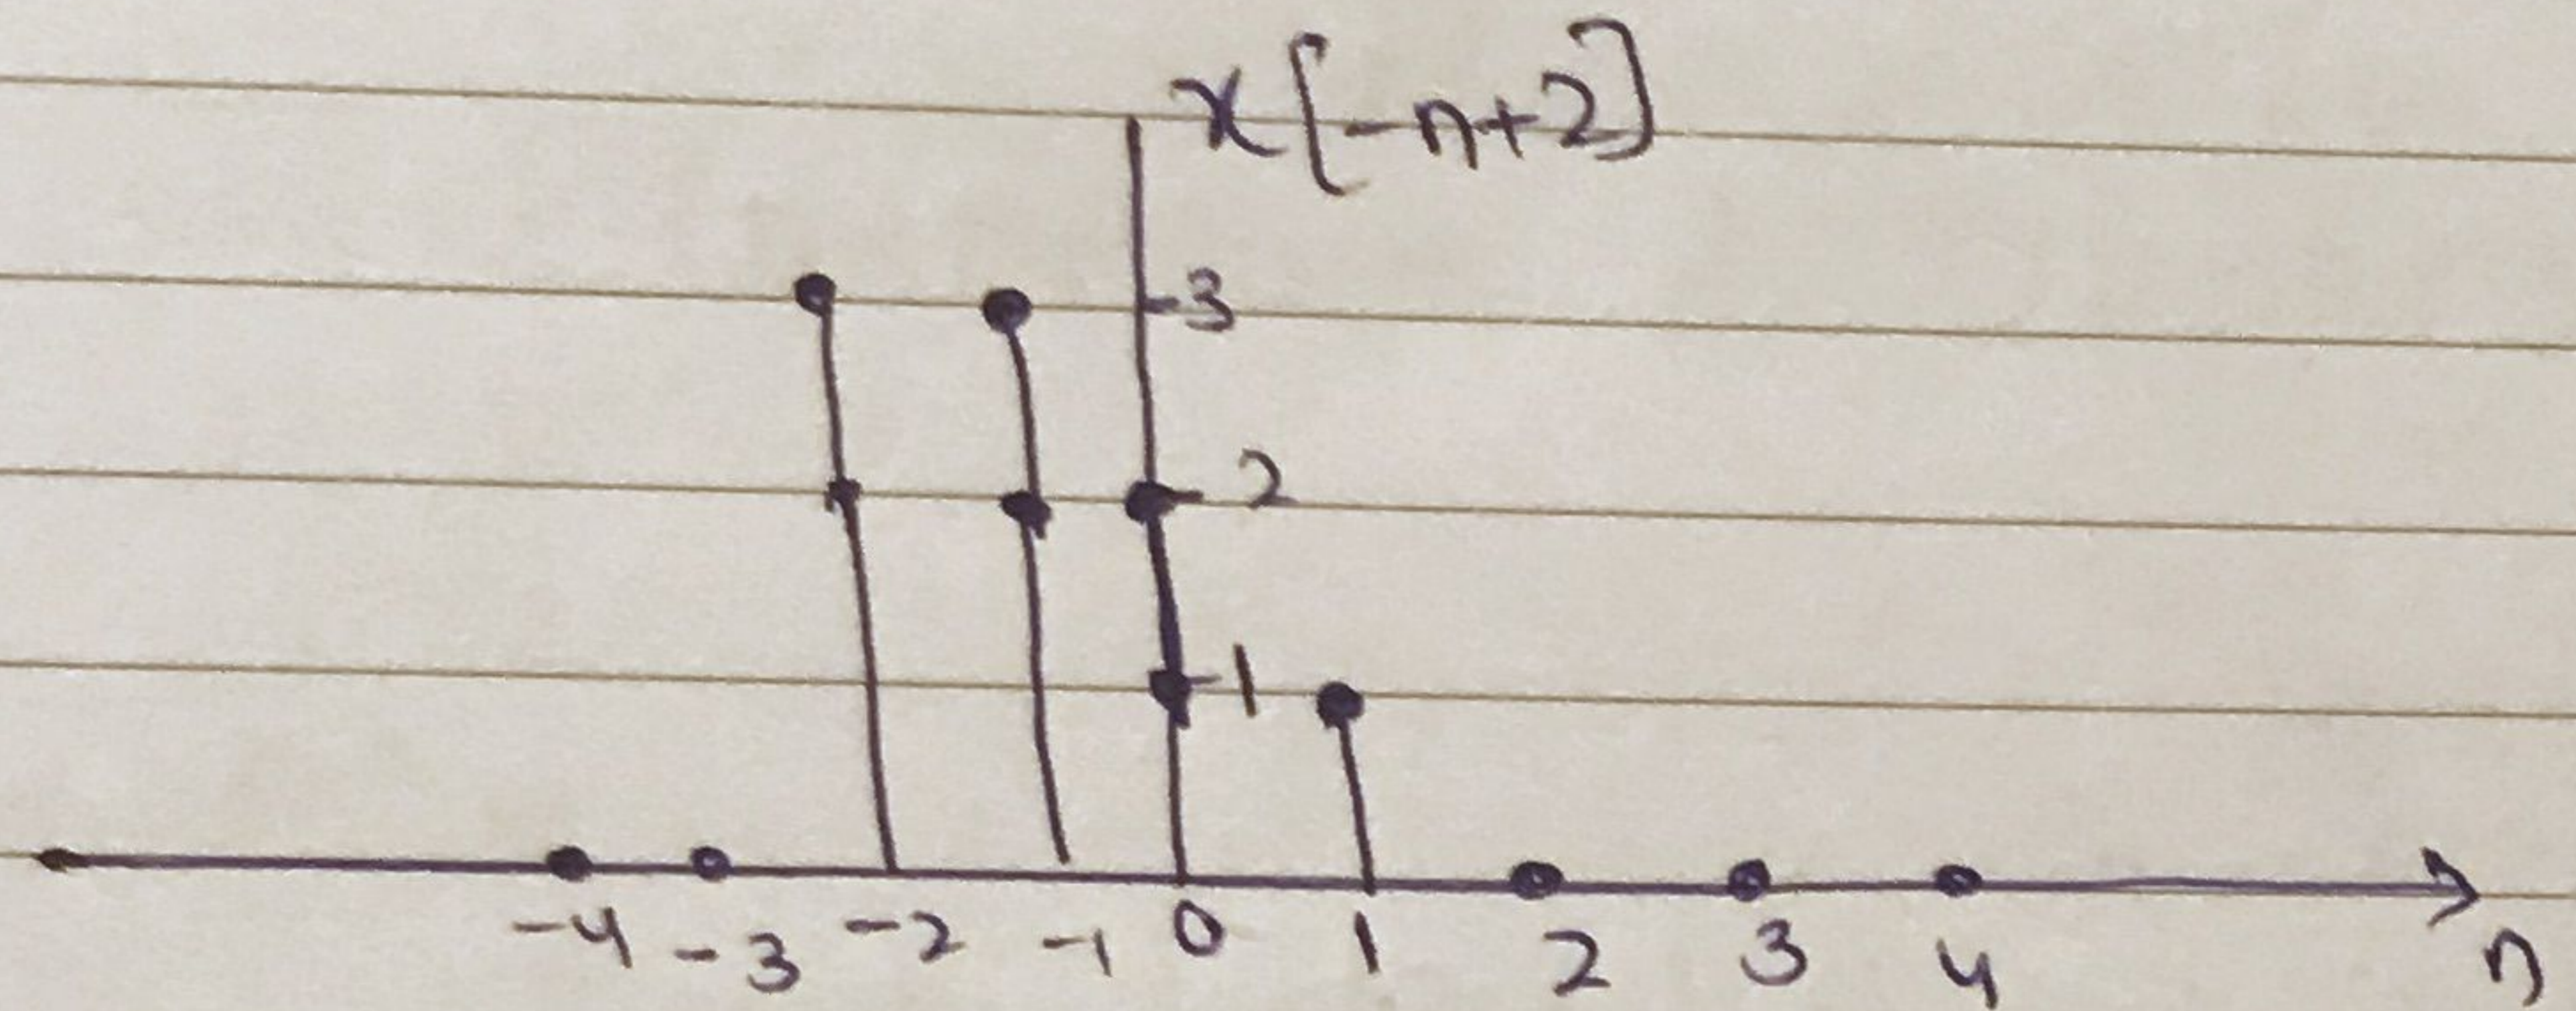 x[-n+2]
3
2
1
-4 -3 -2 -1 0 1 2 3 4 n